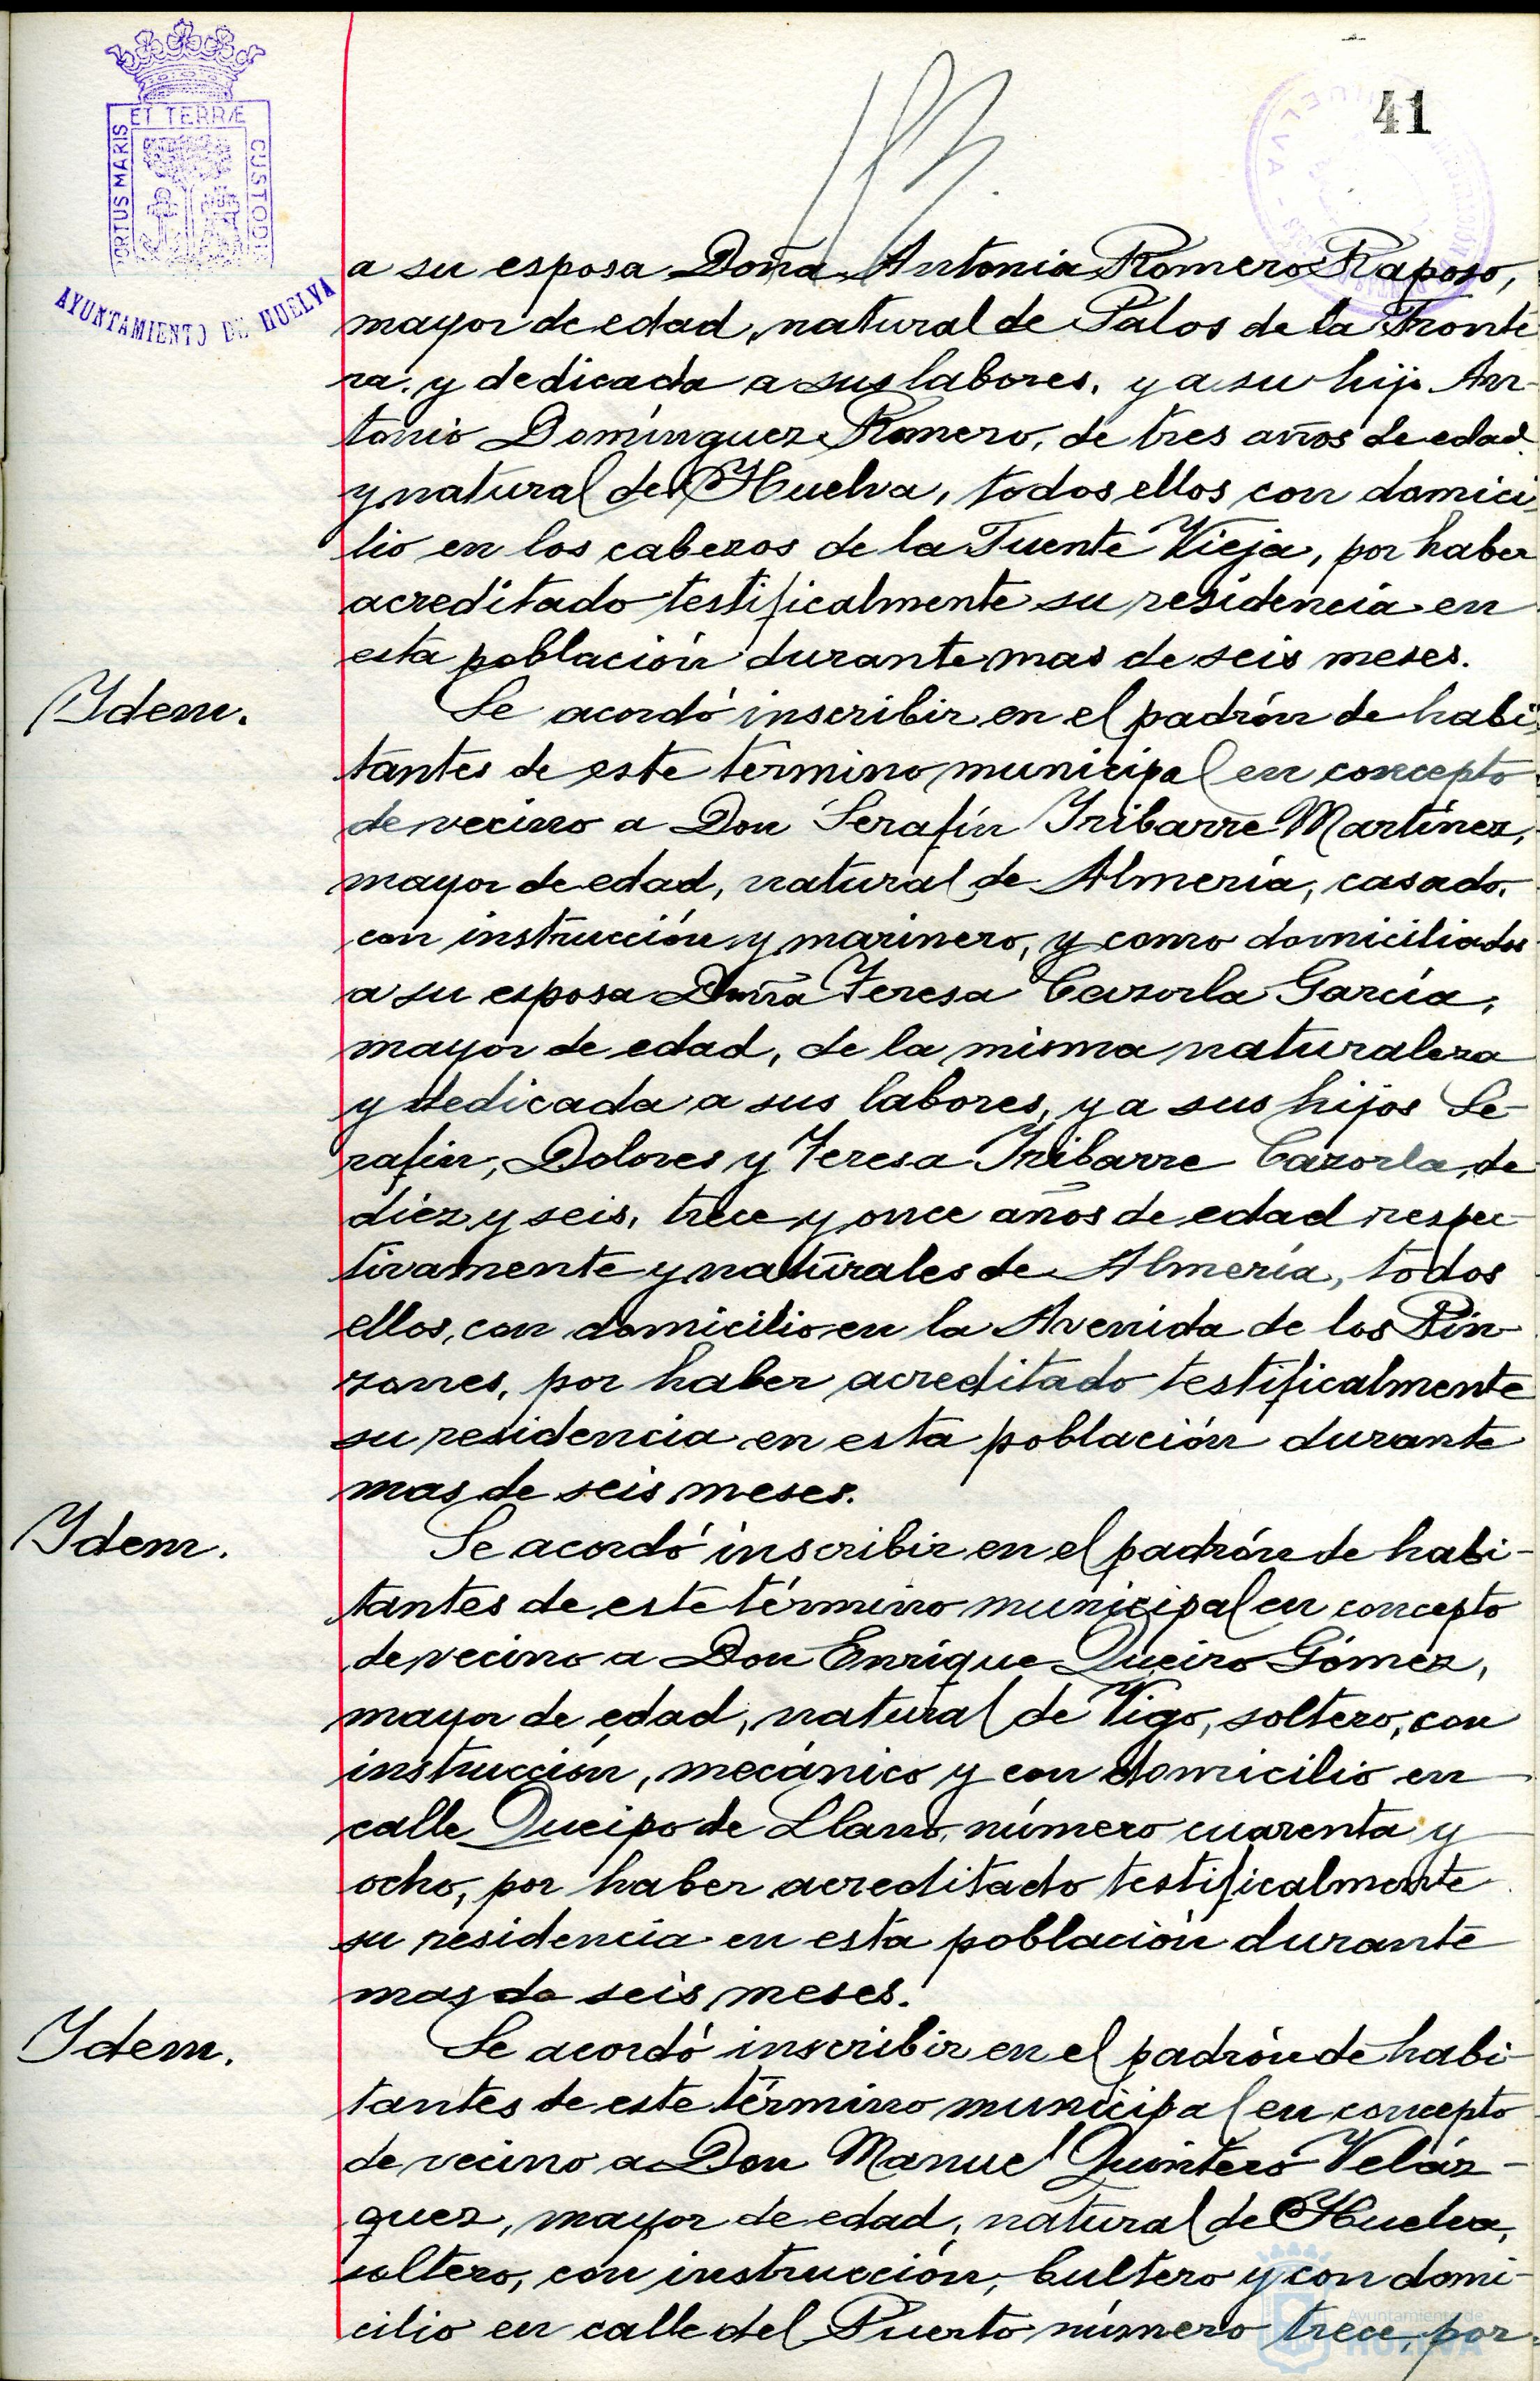 41
ET TERRÆ
PORTUS MARIS
CUSTODI
AYUNTAMIENTO DE HUELVA
a su esposa Doña Antonia Romero Raposo,
mayor de edad, natural de Palos de la Fronte
ra, y dedicada a sus labores, y a su hijo An-
tonio Domínguez Romero, de tres años de edad
y natural de Huelva, todos ellos con domici
lio en los cabezos de la Fuente Vieja, por haber
acreditado testificalmente su residencia en
esta población durante mas de seis meses.
Idem.
Se acordó inscribir en el padrón de habi-
tantes de este término municipal en concepto
de vecino a Don Serafín Iribarre Martínez,
mayor de edad, natural de Almería, casado,
con instrucción y marinero, y como domiciliados
a su esposa Doña Teresa Cazorla García,
mayor de edad, de la misma naturaleza
y dedicada a sus labores, y a sus hijos Se-
rafin, Dolores y Teresa Iribarre Cazorla, de
diez y seis, trece y once años de edad respec-
tivamente y naturales de Almería, todos
ellos, con domicilio en la Avenida de los Pin-
zones, por haber acreditado testificalmente
su residencia en esta población durante
mas de seis meses.
Idem.
Se acordó inscribir en el padrón de habi-
tantes de este término municipal en concepto
de vecino a Don Enrique Queiro Gómez,
mayor de edad, natural de Vigo, soltero, con
instrucción, mecánico y con domicilio en
calle Queipo de Llano, número cuarenta y
ocho, por haber acreditado testificalmente
su residencia en esta población durante
mas de seis meses.
Idem.
Se acordó inscribir en el padrón de habi-
tantes de este término municipal en concepto
de vecino a Don Manuel Quintero Veláz-
quez, mayor de edad, natural de Huelva,
soltero, con instrucción, bultero y con domi-
cilio en calle del Puerto número trece, por
Ayuntamiento de
HUELVA